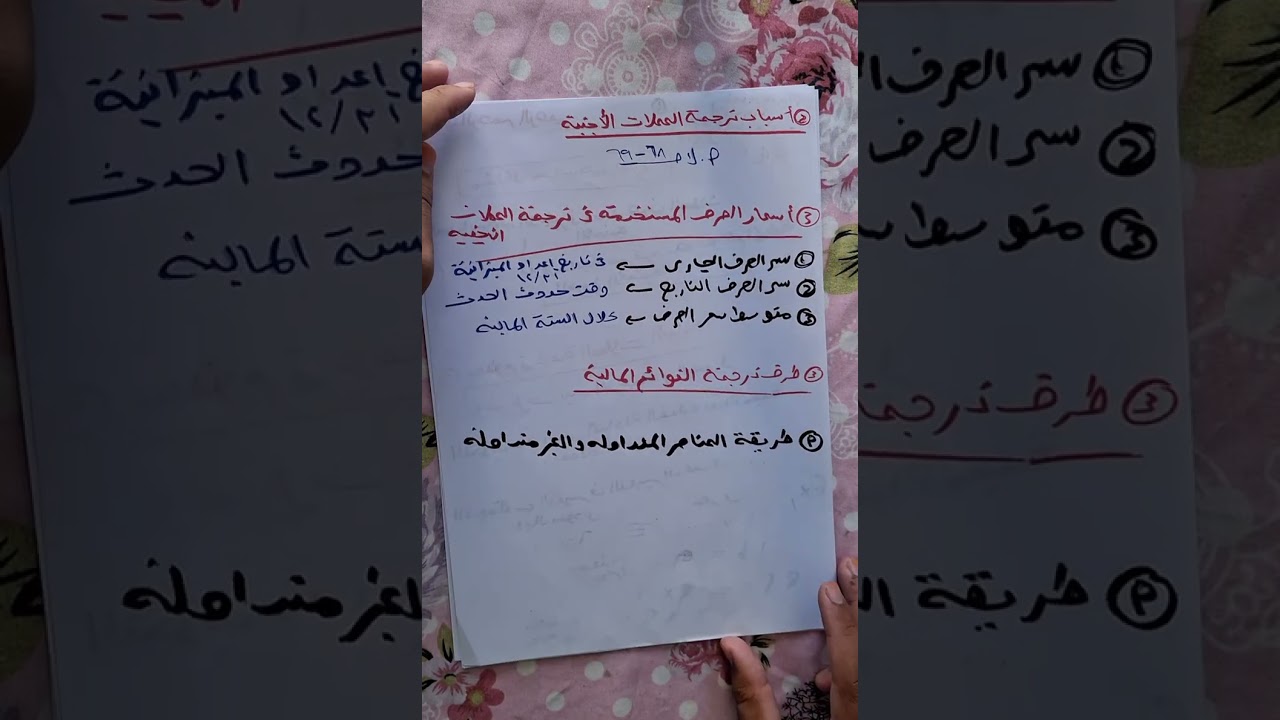 ② أسباب ترجمة العملات الأجنبية
ص.لام ٦٨-٦٩
③ أسعار الصرف المستخدمة في ترجمة العملات
الأجنبيه
① سعر الصرف الجاري ← في تاريخ إعداد الميزانية
١٢/٣١
② سعر الصرف التاريخي ← وقت حدوث الحدث
③ متوسط سعر الصرف ← خلال السنة المالية
③ طرق ترجمة القوائم المالية
طريقة العناصر المتداوله والغير متداوله